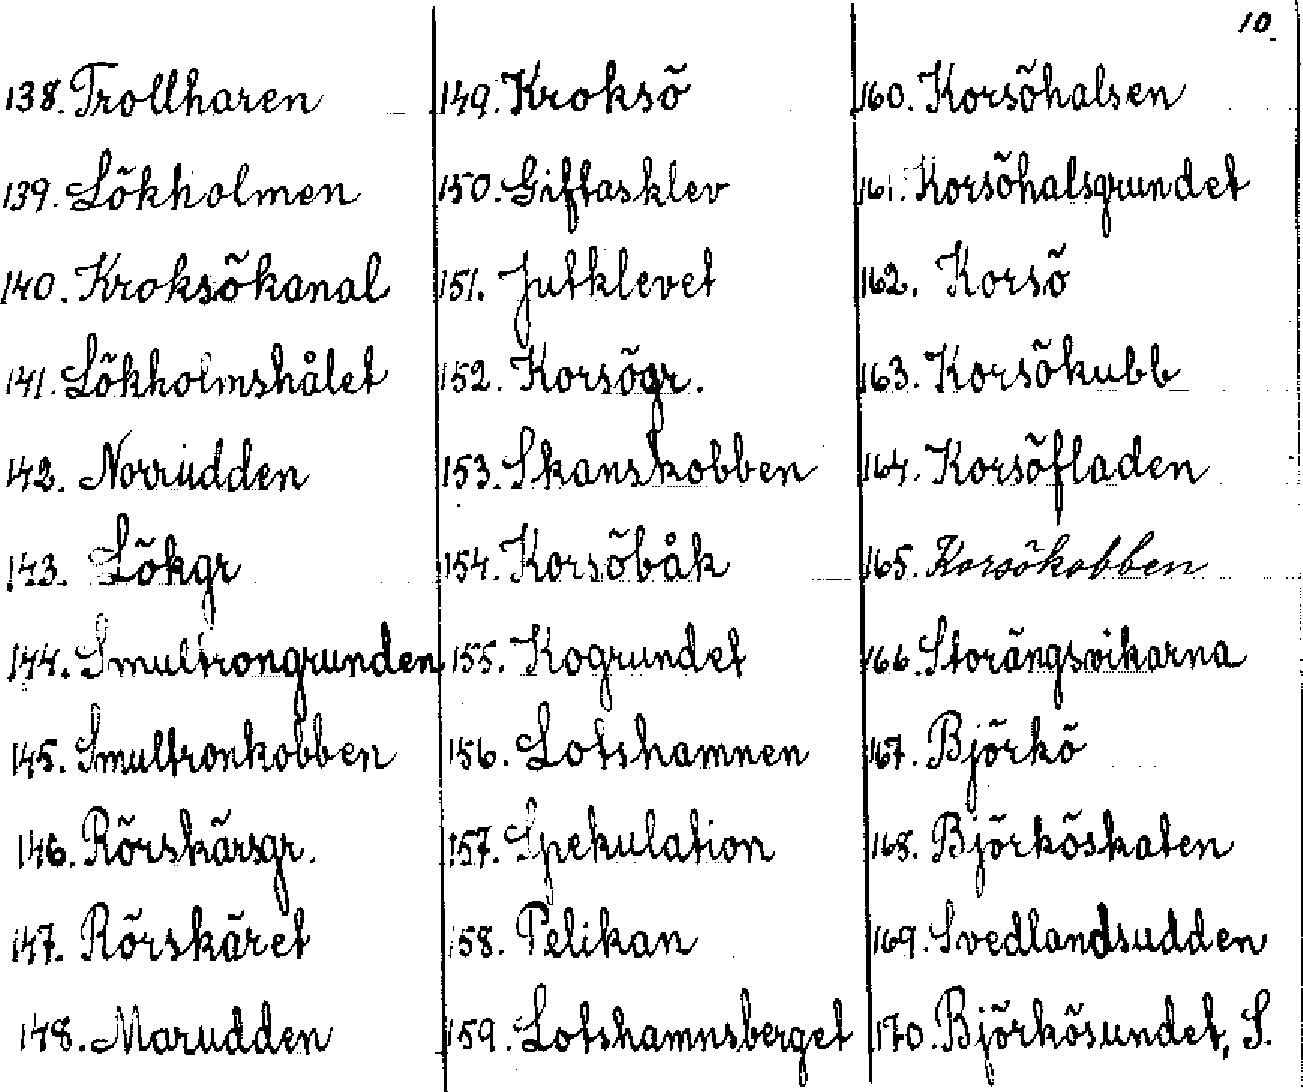 10.
138. Trollharen
139. Lökholmen
140. Kroksökanal
141. Lökholmshålet
142. Norrudden
143. Lökgr
144. Smultrongrunden
145. Smultronkobben
146. Rörskärsgr.
147. Rörskäret
148. Marudden
149. Kroksö
150. Giftasklev
151. Jutklevet
152. Korsögr.
153. Skanskobben
154. Korsöbåk
155. Kogrundet
156. Lotshamnen
157. Spekulation
158. Pelikan
159. Lotshamnsberget
160. Korsöhalsen
161. Korsöhalsgrundet
162. Korsö
163. Korsökubb
164. Korsöfladen
165. Korsökobben
166. Storängsvikarna
167. Björkö
168. Björköskaten
169. Svedlandsudden
170. Björkösundet, S.